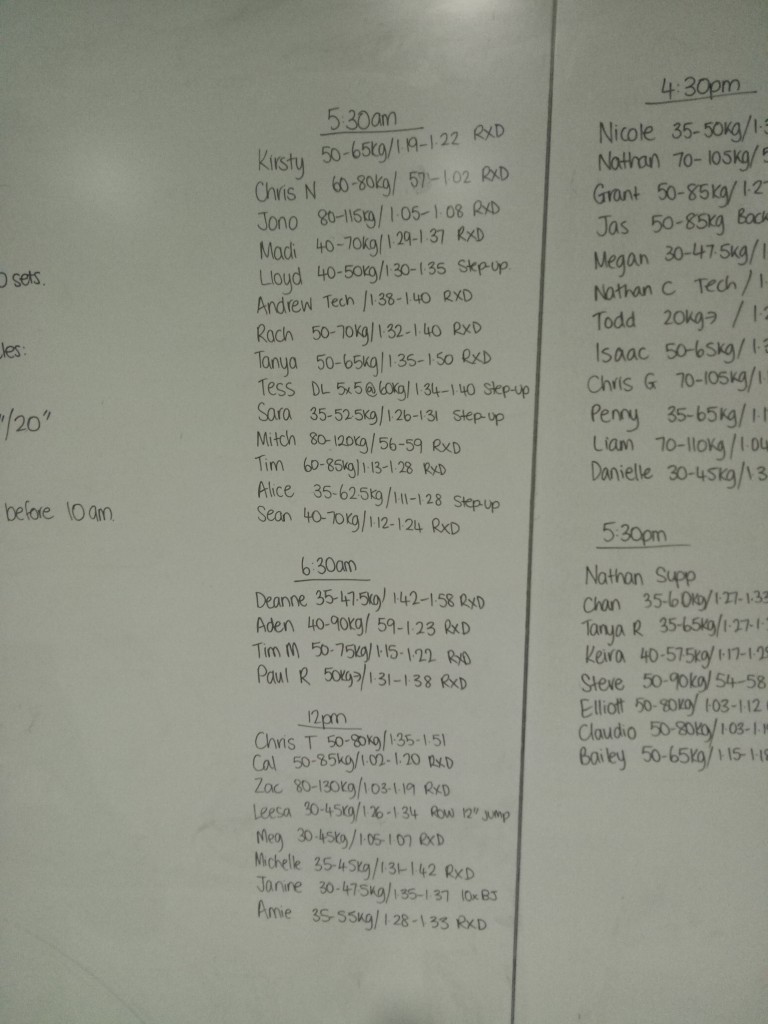 0 sets.
les:
"/20"
before 10am
5:30am
Kirsty 50-65kg/1.19-1.22 RXD
Chris N 60-80kg/ 57-1.02 RXD
Jono 80-115kg/1.05-1.08 RXD
Madi 40-70kg/1.29-1.37 RXD
Lloyd 40-50kg/1.30-1.35 Step-up.
Andrew Tech /1.38-1.40 RXD
Rach 50-70kg/1.32-1.40 RXD
Tanya 50-65kg/1.35-1.50 RXD
Tess DL 5x5@60kg/1.34-1.40 Step-up
Sara 35-52.5kg/1.26-1.31 Step-up
Mitch 80-120kg/56-59 RXD
Tim 60-85kg/1.13-1.28 RXD
Alice 35-62.5kg/1.11-1.28 Step-up
Sean 40-70kg/1.12-1.24 RXD
6:30am
Deanne 35-47.5kg/1.42-1.58 RXD
Aden 40-90kg/ 59-1.23 RXD
Tim M 50-75kg/1.15-1.22 RXD
Paul R 50kg→/1.31-1.38 RXD
12pm
Chris T 50-80kg/1.35-1.51
Cal 50-85kg/1.02-1.20 RXD
Zac 80-130kg/1.03-1.19 RXD
Leesa 30-45kg/1.26-1.34 Row 12" jump
Meg 30-45kg/1.05-1.07 RXD
Michelle 35-45kg/1.31-1.42 RXD
Janine 30-47.5kg/1.35-1.37 10xBJ
Amie 35-55kg/1.28-1.33 RXD
4:30pm
Nicole 35-50kg/1.3
Nathan 70-105kg/5
Grant 50-85kg/1.27
Jas 50-85kg Back
Megan 30-47.5kg/1
Nathan C Tech /1.
Todd 20kg→ /1.2
Isaac 50-65kg/1.3
Chris G 70-105kg/1
Penny 35-65kg/1.1
Liam 70-110kg/1.04
Danielle 30-45kg/1.3
5:30pm
Nathan Supp
Chan 35-60kg/1.27-1.33
Tanya R 35-65kg/1.27-1.
Keira 40-57.5kg/1.17-1.29
Steve 50-90kg/54-58
Elliott 50-80kg/1.03-1.12
Claudio 50-80kg/1.03-1.1
Bailey 50-65kg/1.15-1.18